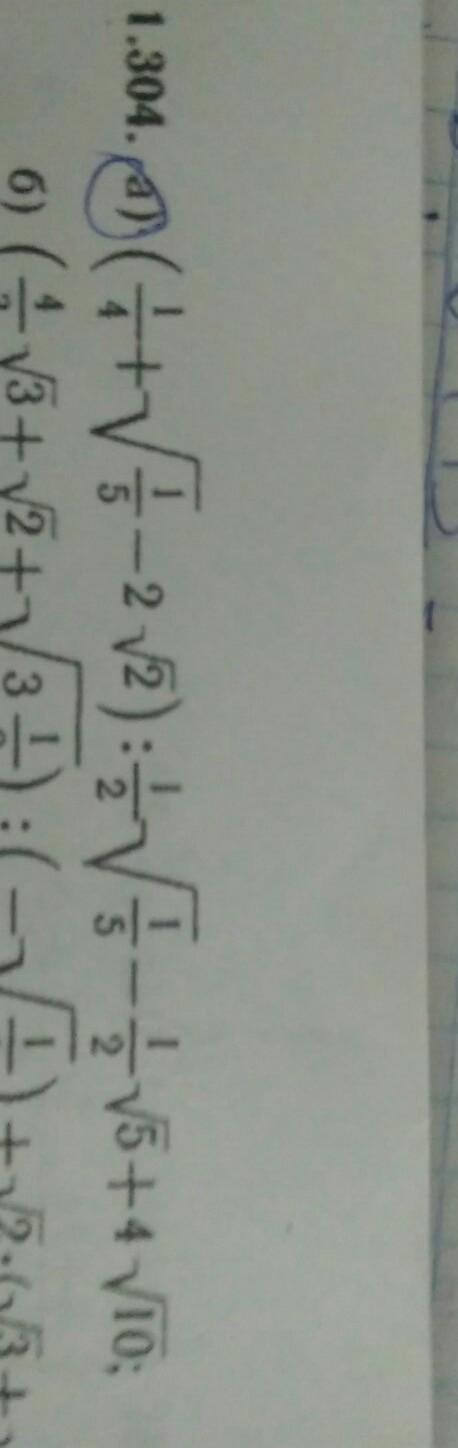 1.304. а) (1/4 + √(1/5) − 2√2) : 1/2 √(1/5) − 1/2 √5 + 4√10;
б) (4/ √3 + √2 + √(3 1/ )) : (−√(1/ )) + √2 · (√3 +